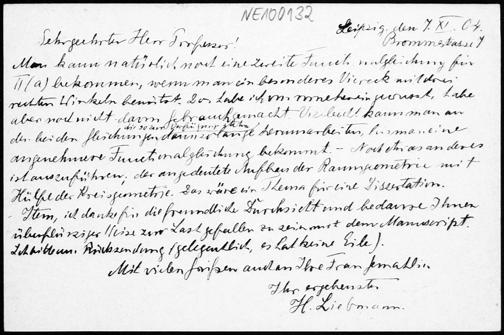 NE100132
Leipzig, den 7. XI. 04.
Brommestrasse 7
Sehrgeehrter Herr Professor!
Man kann natürlich noch eine zweite Functionalgleichung für
Π(a) bekommen, wenn man ein besonderes Viereck mit drei
rechten Winkeln benutzt. Das habe ich von vorneherein gewusst, habe
aber noch nicht davon Gebrauch gemacht. Vielleicht kann man an
den beiden Gleichungen dann so lange herumarbeiten, bis man eine
angenehmere Functionalgleichung bekommt. — Noch etwas anderes
ist auszuführen, der angedeutete Aufbau der Raumgeometrie mit
Hülfe der Kreisgeometrie. Das wäre ein Thema für eine Dissertation.
Ihnen, ich danke für die freundliche Durchsicht und bedaure Ihnen
überflüssiger Weise zur Last gefallen zu sein mit dem Manuscript.
Rücksendung (gelegentlich, es hat keine Eile).
Mit vielen Grüssen auch an Ihre Frau Gemahlin
Ihr ergebenster
H. Liebmann.